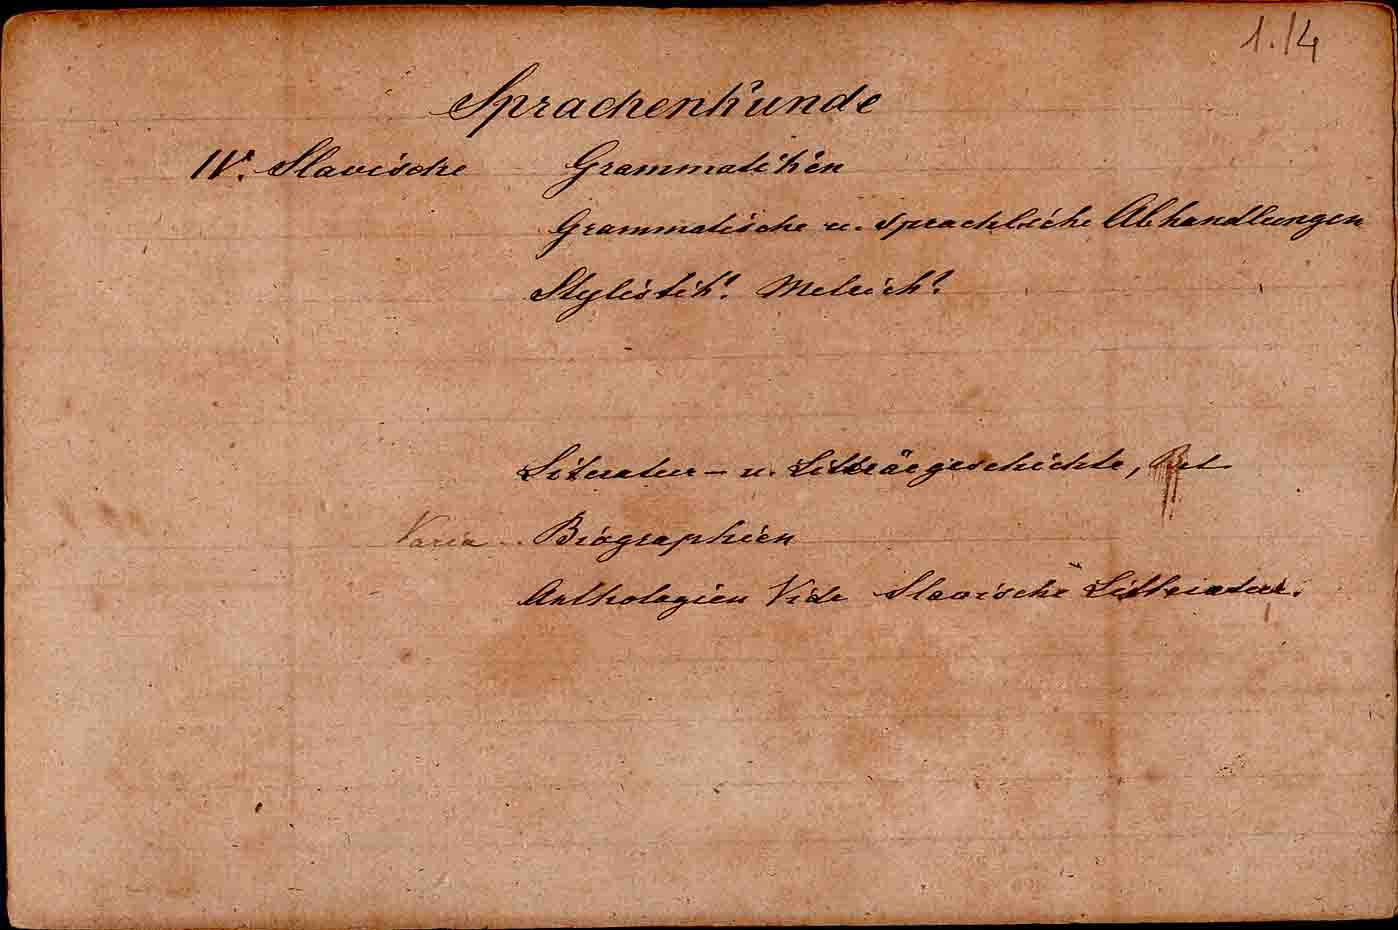 1./4
Sprachenkunde
IV. Slavische Grammatiken
Grammatische u. sprachliche Abhandlungen
Stylistik. Metrick.
Literatur- u. Litterärgeschichte,
Varia Biographien
Anthologien Vide Slavische Litteratur.